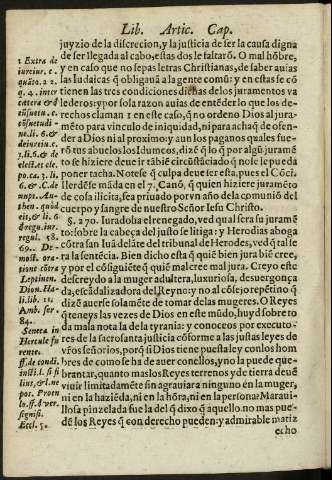 Lib. Artic. Cap.
juyzio de la discrecion, y la justicia de ser la causa digna
de ser llegada al cabo, estas dos le faltarõ. O mal hõbre,
y en caso que no sepas letras Christianas, de saber auias
las Iudaicas q̃ obligauã a la gente comũ: y en estas se cõ
tienen las tres condiciones dichas de los juramentos va
lederos: y por sola razon auias de entẽder lo que los de-
rechos claman 1 en este caso, q̃ no ordeno Dios al jura-
mẽto para vinculo de iniquidad, ni para achaq̃ de ofen-
der a Dios ni al proximo: y aun los paganos quales fue-
rõ tus abuelos los Idumeos, dizẽ q̃ lo q̃ por algũ juramẽ
to se hiziere deue ir tãbiẽ circũstãciado q̃ no se le pueda
poner tacha. Notese q̃ culpa deue ser esta, pues el Cõci.
Ilerdẽse mãda en el 7. Canõ, q̃ quien hiziere juramẽto
de cosa ilicita, sea priuado por vn año de la comuniõ del
cuerpo y sangre de nuestro Señor Iesu Christo.
§. 270. Iuradolo à el renegado, ved qual sera su juramẽ-
to: sobre la cabeça del justo se litiga: y Herodias aboga
cõtra san Iuã delãte del tribunal de Herodes, ved q̃ tal se
ra la sentẽcia. Bien dicho esta q̃ quiẽ bien jura biẽ cree,
y por el cõsiguiẽte q̃ quiẽ mal cree mal jura. Creyo este
descreydo a la muger adultera, luxuriosa, desuergonça
da, escãdalizadora del Reyno: y no al cõsejo repetino q̃
dizẽ auerse solamẽte de tomar de las mugeres. O Reyes
q̃ teneys las vezes de Dios en este mũdo, huyd sobre to
da mala nota la de tyrania: y conoceos por executo-
res de la sacrosanta justicia cõforme a las justas leyes de
vr̃os señorios, porq̃ si Dios tiene puesta ley con los hom
bres de como se ha de auer con ellos, y no la puede que-
brantar, quanto mas los Reyes terrenos y de tierra deuẽ
viuir limitadamẽte sin agrauiar a ninguno ẽn la muger,
ni en la haziẽda, ni en la hõra, ni en la persona: Maraui-
llosa pinzelada fue la del q̃ dixo q̃ aquello no mas pue-
dẽ los Reyes q̃ con derecho pueden: y admirable matiz
echo
1 Extra de
iureiur. c.
quãto. 22.
q. 4. inter
cætera & d
cõsuetu. c.
cõsuetudi-
ne. li. 6. &
de iureiu. c.